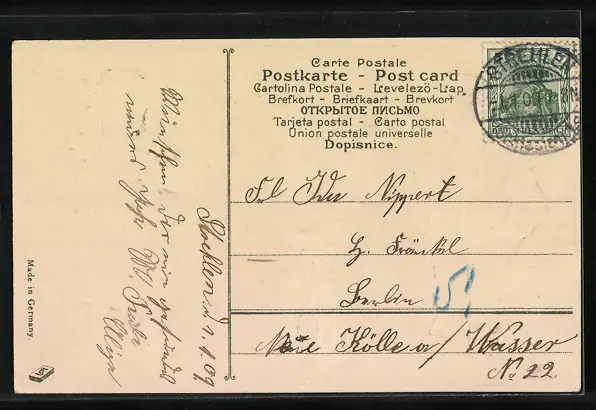 Carte Postale
Postkarte - Post card
Cartolina Postale - Levelező-Lap
Brefkort - Briefkaart - Brevkort
ОТКРЫТОЕ ПИСЬМО
Tarjeta postal - Carto postal
Union postale universelle
Dopisnice.
STREHLEN
DEUTSCHES REICH
Frl Ida Nippert
Fränkel
Berlin
Neue Kölln a/ Wasser
No 22
Strehlen d 1. 1 09
Wünschen Dir ein gesundes
neues Jahr
Made in Germany.